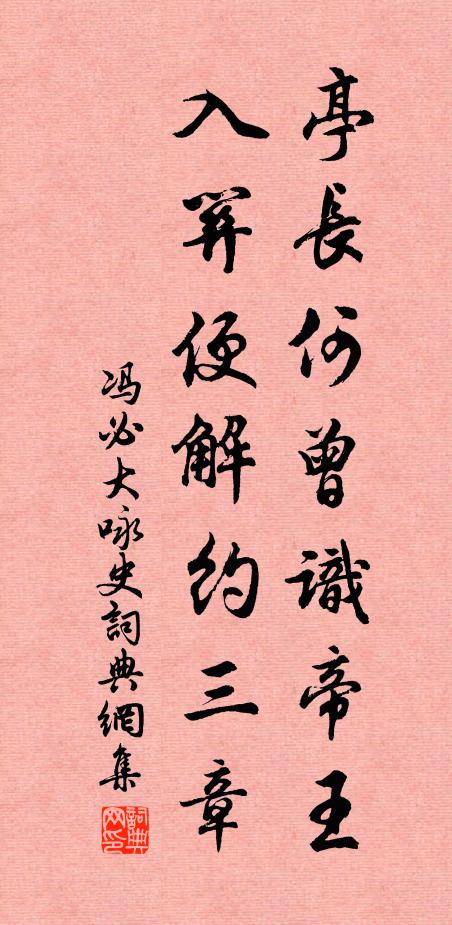 亭長何曾識帝王
入關便解約三章
冯必大咏史詞典網集
詞典
网印